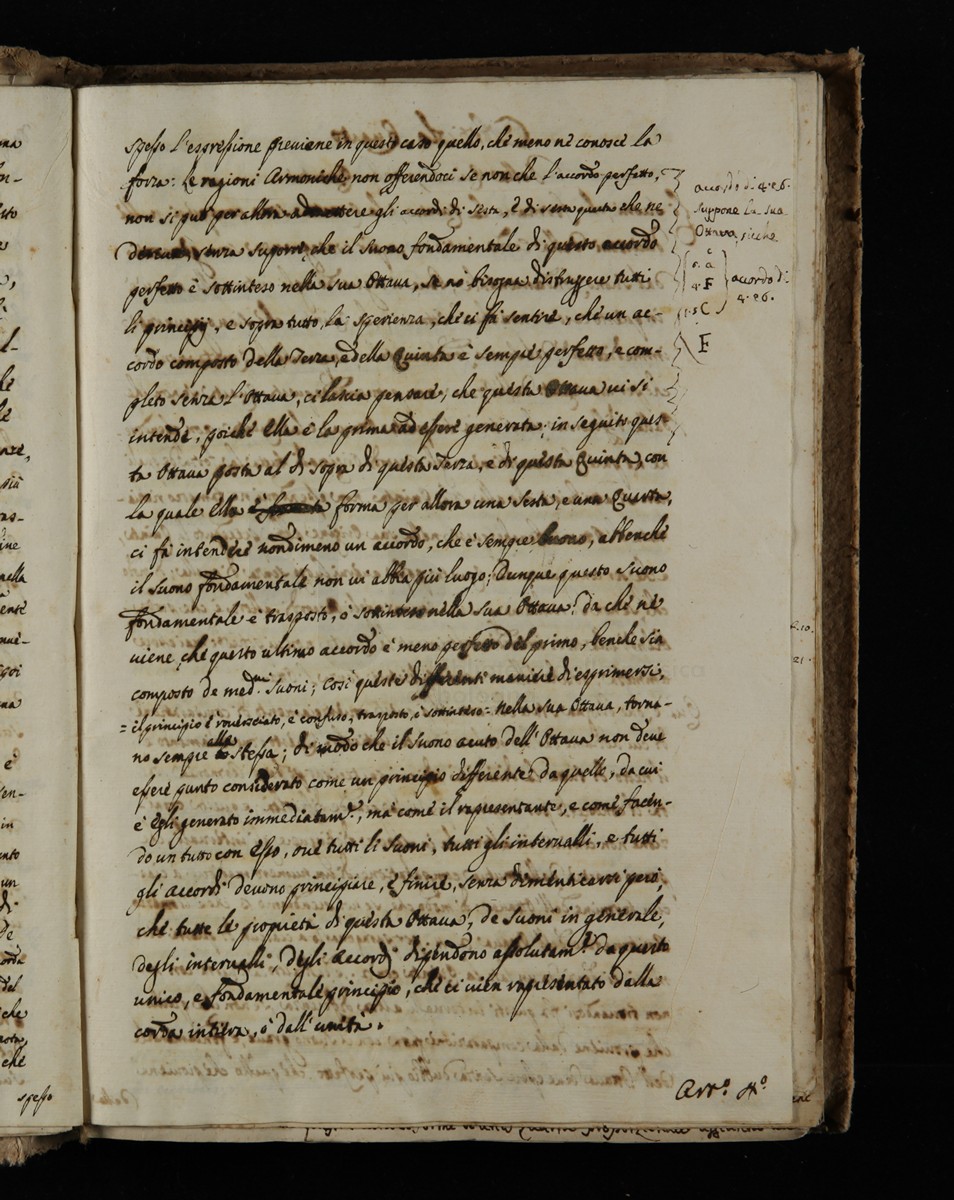 spesso l'espressione previene in questo caso quello, che meno ne conosce la
forza: Le ragioni Armoniche non offerendoci se non che l'accordo perfetto,
non si può per allora admettere gli accordi di Sesta, e di sesta quarta che ne
derivano, senza suporre, che il suono fondamentale di questo accordo
perfetto è sottinteso nella sua Ottava, se nò bisogna distruggere tutti
li principij, e sopra tutto, la sperienza, che ci fà sentire, che un ac-
cordo composto della Terza, e della Quinta è sempre perfetto, e com-
pleto senza l'Ottava, ci lascia pensare, che questa Ottava vi si
intende, poiche Ella è la prima ad essere generata; in seguito ques-
ta Ottava posta al di sopra di questa Terza, e di questa Quinta, con
la quale Ella forma per allora una Sesta, e una Quarta,
ci fà intendere nondimeno un accordo, che è sempre buono, abbenche
il suono fondamentale non vi abbia più luogo; Dunque questo suono
fondamentale è trasposto, o sottinteso nella sua Ottava: da che ne
viene, che questo ultimo accordo è meno perfetto del primo, benche sia
composto de med.mi suoni; Così queste differenti maniere di esprimersi,
= il principio è rovesciato, è confuso, trasposto, o sottinteso = nella sua Ottava, torna-
no sempre allo stesso; di modo che il suono acuto dell'Ottava non deve
essere punto considerato come un principio differente da quello, da cui
è Egli generato immediatam.e, ma come il rapresentante, e come facen-
do un tutto con Esso, ove tutti li suoni, tutti gli intervalli, e tutti
gli accordi devono principiare, e finire, senza dimenticarsi però,
che tutte le proprietà di questa Ottava, de suoni in generale,
degli intervalli, degli accordi dipendono assolutam.e da questo
unico, e fondamentale principio, che ci vien rapresentato dalla
corda intiera, o dall'unità.
Art.o 4.o
accordo di 4. e 6.
suppone la sua
Ottava, sicche
c
6. a
4. F
C
accordo di
4. e 6.
F